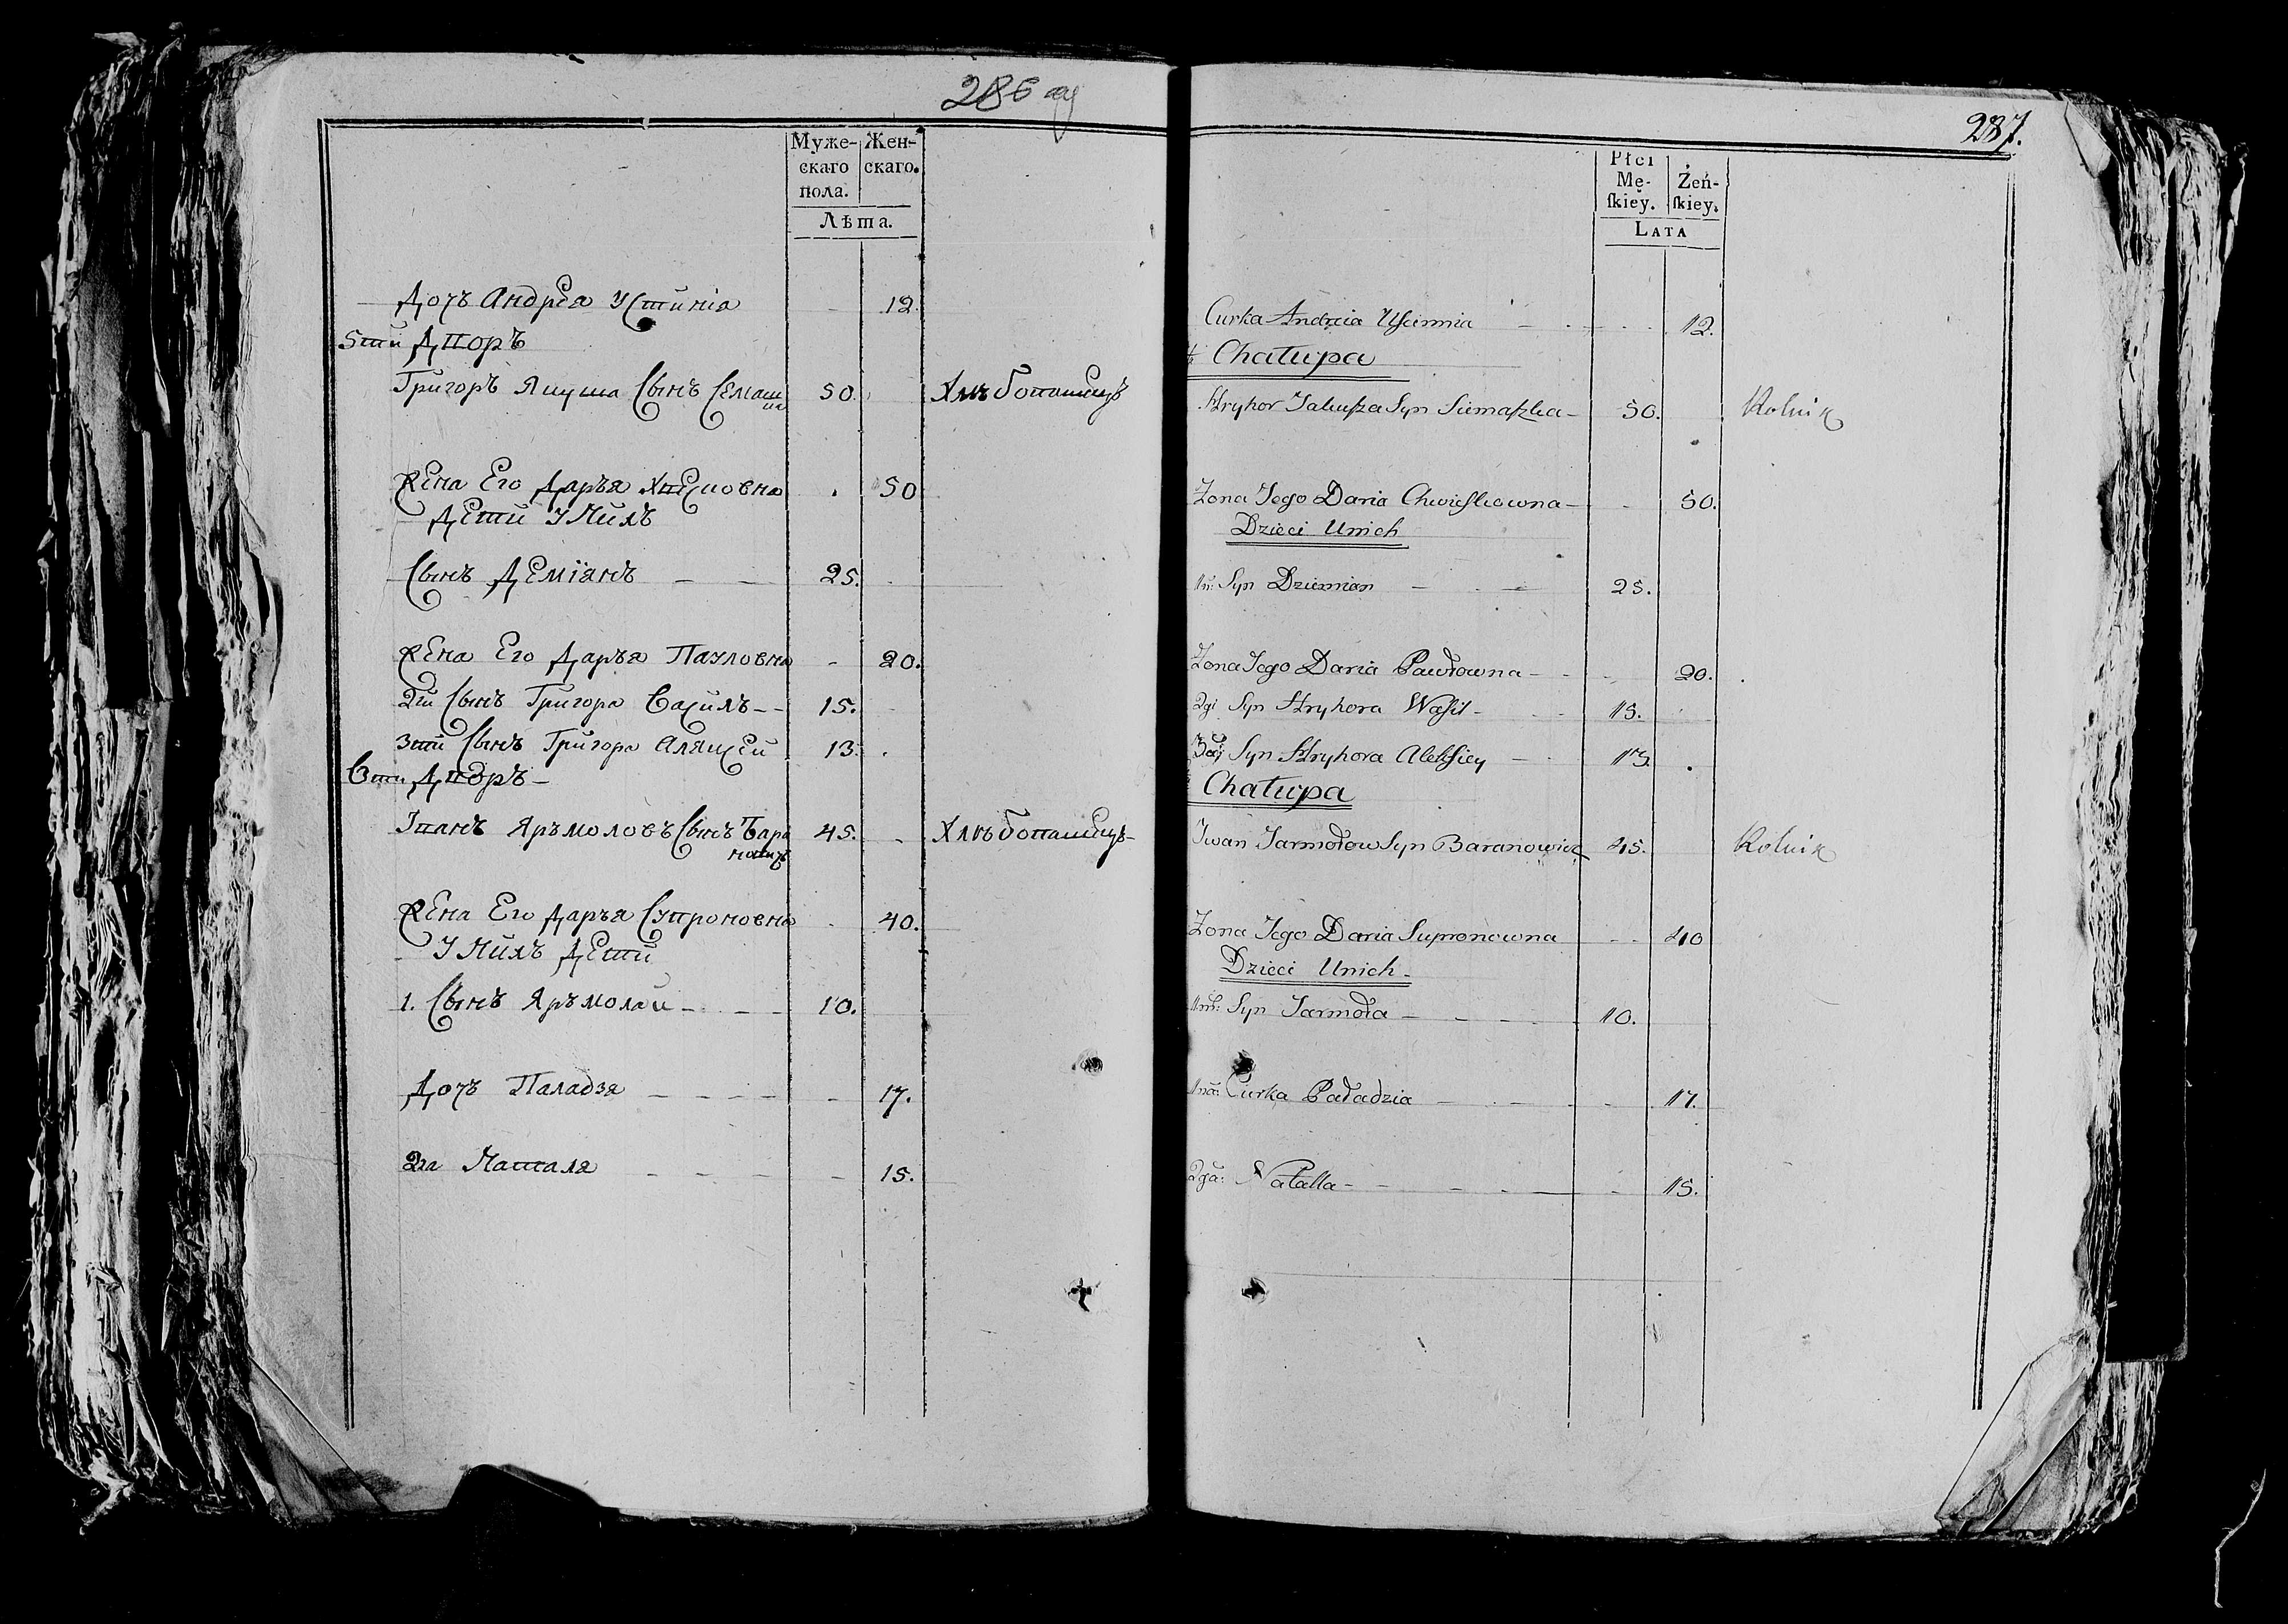 286
Муже-
скаго
пола.
Жен-
скаго.
Лѣта.
Дочъ Андрея Устинія - 12.
5тй Дворъ
Григоръ Якуша Сынъ Семаш
ка 50. Хлѣбопашецъ
Жена Его Даръя Хвесковна . 50
Дети У Нихъ
Сынъ Деміянъ - - 25.
Жена Его Даръя Паулов­на - 20.
2гй Сынъ Григора Василъ - - 15.
3тй Сынъ Григора Аляксей 13.
6тй Дворъ -
Іванъ Яръмоловъ Сынъ Бара
новичъ 45. - Хлѣбопашецъ -
Жена Его Даръя Супроновна - 40.
У Нихъ Дети
1. Сынъ Яръмолай - - - 10.
Дочъ Паладзя - - - - 17.
2га Наталя - - - - 15.
287.
Płci
Mę-
ſkiey.
Żeń-
ſkiey.
LATA
Curka Andreia Uscinnia - - - 12.
Chałupa
Hryhor Jakuſza Syn Siemaſzka - 50. Rolnik
Zona Jego Daria Chwieſkowna - - 50.
Dzieci Unich
1n: Syn Dziemian - - 25.
Zona Jego Daria Pawłowna - - 20.
2gi Syn Hryhora Waſil - 15.
3ci Syn Hryhora Alekſiey - 13.
Chałupa
Jwan Jarmołow Syn Baranowicz 45. Rolnik
Zona Jego Daria Supronowna - - 40
Dzieci Unich -
Syn Jarmoła - - - - 10.
1na: Curka Paładzia - - - - 17.
2ga: Natalla - - - - - 15.